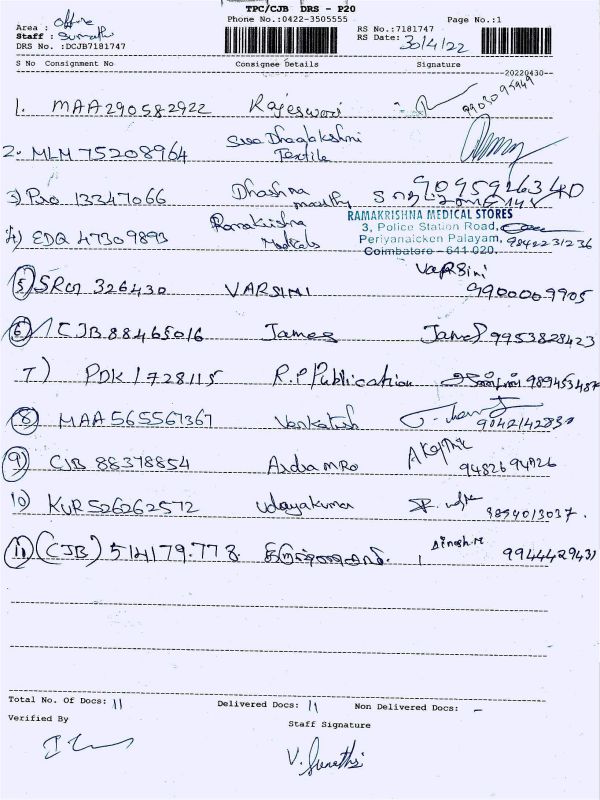 TPC/CJB DRS - P20
Phone No.:0422-3505555
Page No.:1
Area : Office
Staff : Sumathi
DRS No. :DCJB7181747
RS No.:7181747
RS Date: 30/4/22
S No Consignment No Consignee Details Signature
--20220430--
1. MAA290582922 Rajeswari 9903095949
2. MLM 75208964 Sree Dhanalakshmi Textile
3) Pno 13347066 Dhashna moorthy 9095926340
4) EDQ 47309893 Ramakrishna Medicals
RAMAKRISHNA MEDICAL STORES
3, Police Station Road,
Periyanaicken Palayam, 9842231236
Coimbatore - 641 020.
5) SRM 326430 VARSINI Varsini 9900009905
6) CJB 88465016 James James 9953828423
7) PDK1728115 R.P Publication
8) MAA 565567367 Venkatesh 9042142830
9) CJB 88378854 Ardra MRO 9482694726
10) KUR526262572 Udayakumar 9894013037.
11) (CJB) 514179778 Dinesh.M 9944429431
Total No. Of Docs: 11 Delivered Docs: 11 Non Delivered Docs: -
Verified By
Staff Signature
V. Sumathi